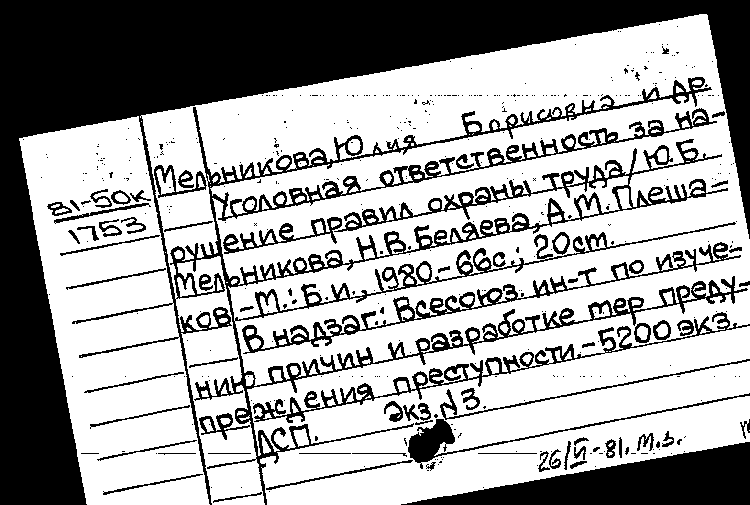 Мельникова, Юлия Борисовна и др
81-50к
1753
Уголовная ответственность за на-
рушение правил охраны труда/Ю.Б.
Мельникова, Н.В. Беляева, А.М. Плеша-
ков.-М.: Б.и., 1980.-66с.; 20см.
В надзаг.: Всесоюз. ин-т по изуче-
нию причин и разработке мер преду-
преждения преступности.-5200 экз.
ДСП. Экз. N3.
26/VI-81. м.з.